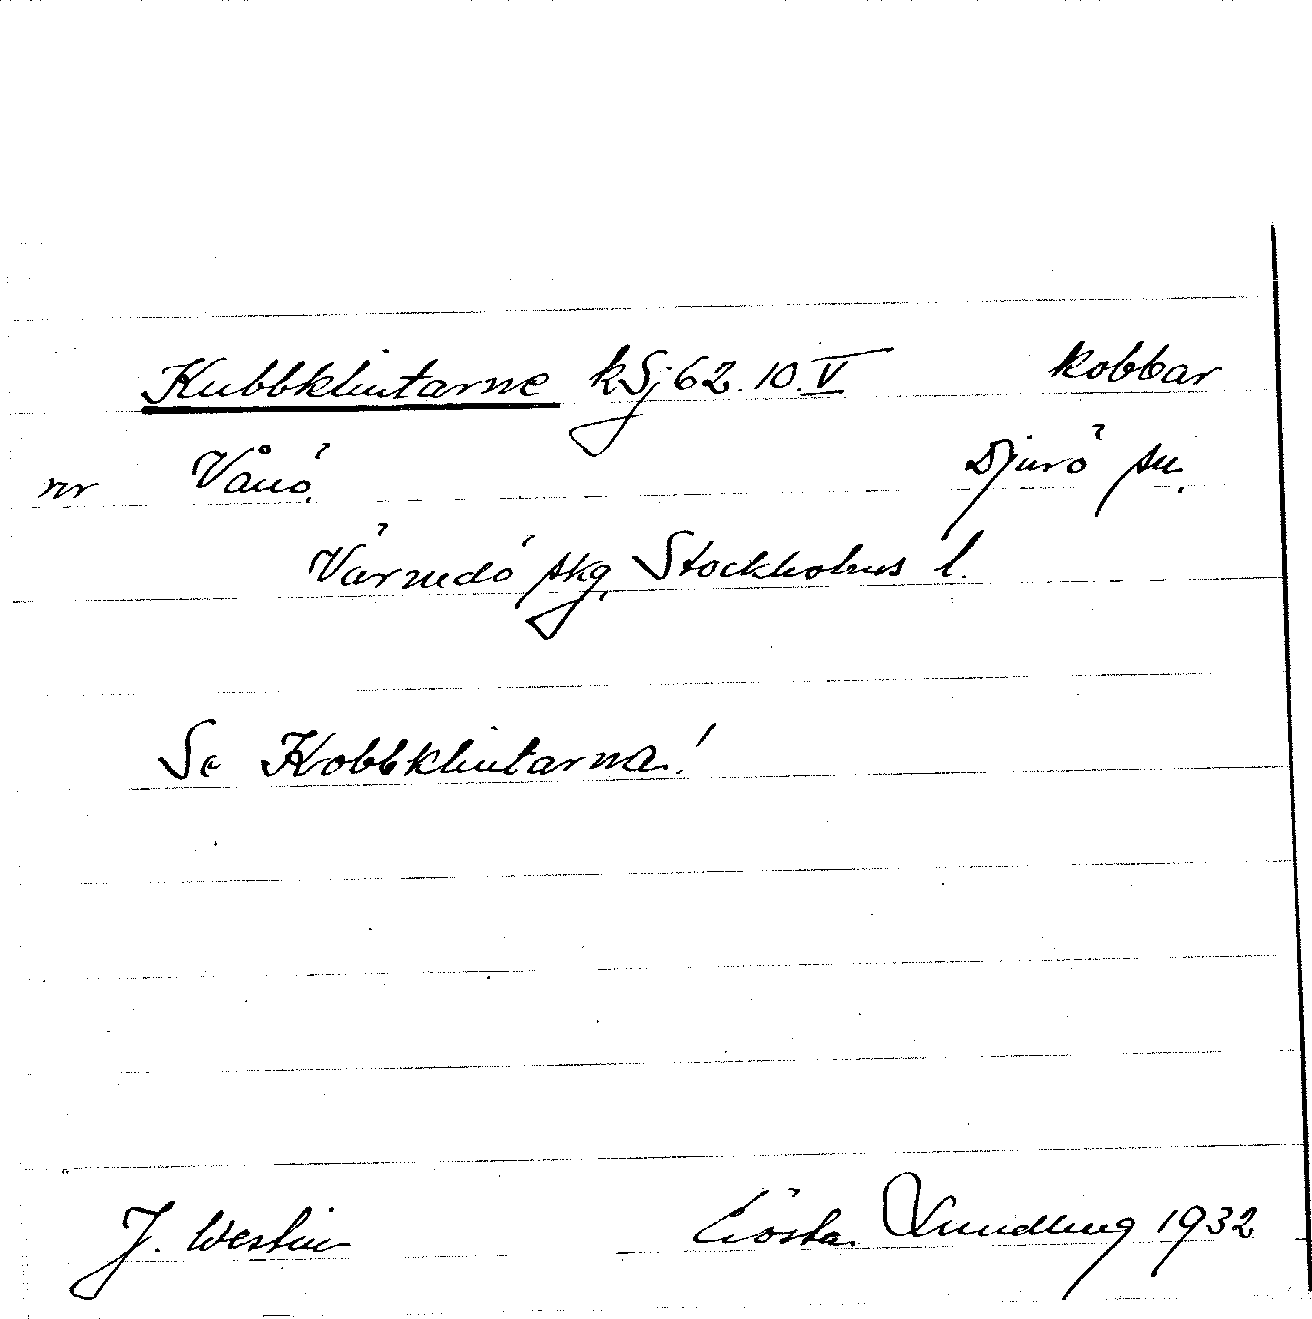 Kubbklintarne kSj 62.10.V kobbar
nr Vånö. Djurö sn.
Värmdö skg. Stockholms l.
Se Kobbklintarna!
J. Westin Gösta Lundling 1932